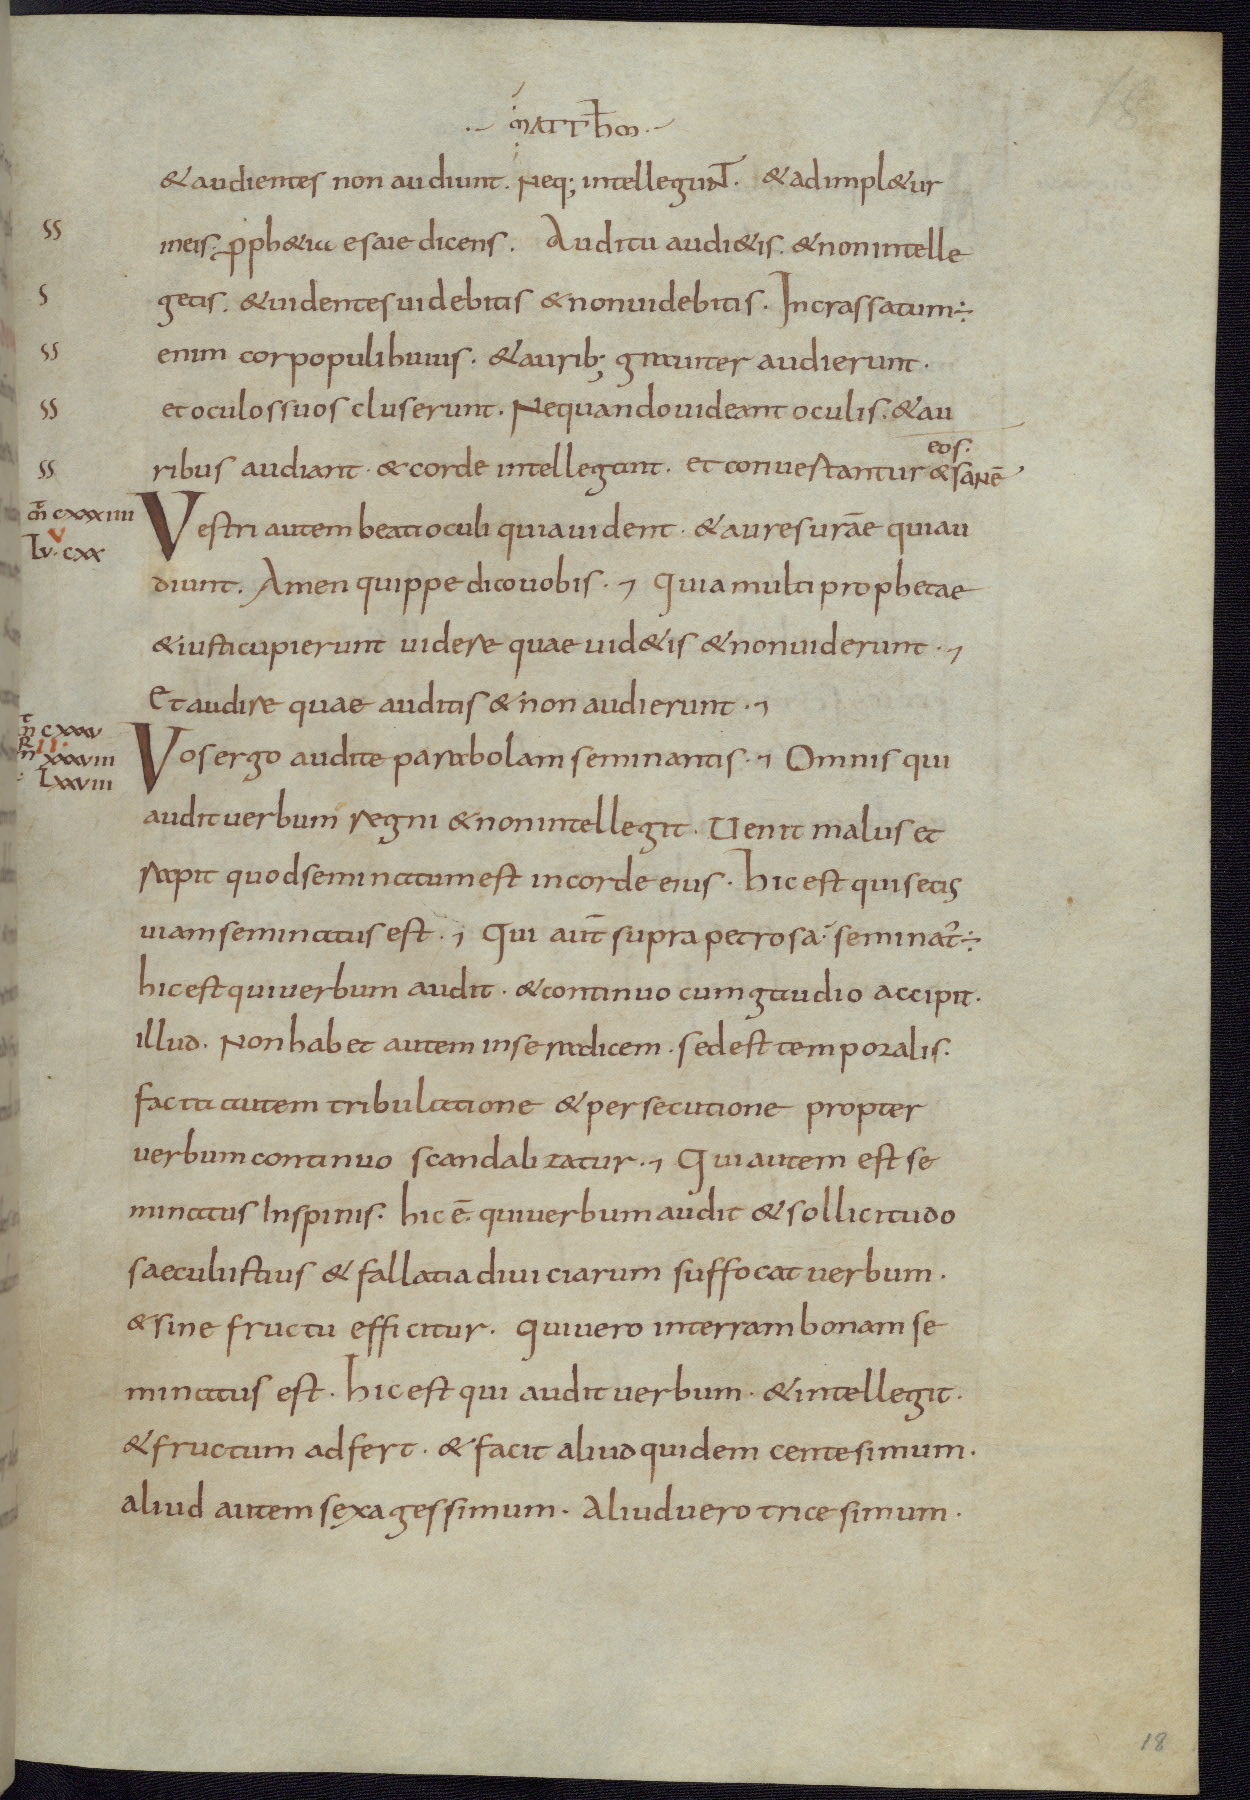 18
·– MATThM ·–
& audientes non audiunt. Neq; intellegunT. & adimpl&ur
ineis. p̄ph&ia esaie dicens. Auditu audi&is. & non intelle
getis. & uidentes uidebitis & non uidebitis. Incrassatum ÷
enim cor populi huius. & aurib; grauiter audierunt.
et oculos suos cluserunt. Nequando uideant oculis. & au
eos.
ribus audiant. & corde intellegant. et conuestantur & sanē
Vestri autem beati oculi quia uident. & aures urāe quiau
diunt. Amen quippe dico uobis. Quia multi prophetae
& iusti cupierunt uidere quae uid&is & non uiderunt.
Et audire quae auditis & non audierunt.
Vos ergo audite parabolam seminantis. Omnis qui
audit uerbum regni & non intellegit. Uenit malus et
rapit quod seminatum est in corde eius. hic est qui secus
uiam seminatus est. Qui aut̄ supra petrosa seminat̄ ÷
hic est qui uerbum audit. & continuo cum gaudio accipit.
illud. Non habet autem in se radicem. sed est temporalis.
facta autem tribulatione & persecutione propter
uerbum continuo scandalizatur. Qui autem est se
minatus In spinis. hic ē. qui uerbum audit & sollicitudo
saeculi istius & fallatia diuiciarum suffocat uerbum.
& sine fructu efficitur. Qui uero in terram bonam se
minatus est. hic est qui audit uerbum. & intellegit.
& fructum adfert. & facit aliud quidem centesimum.
aliud autem sexagessimum. Aliud uero tricesimum.
ss
s
ss
ss
ss
m̄ cxxxiiii
V
Lv. cxx
m̄ cxxxv
II
xxxviii
Lxxviii
18